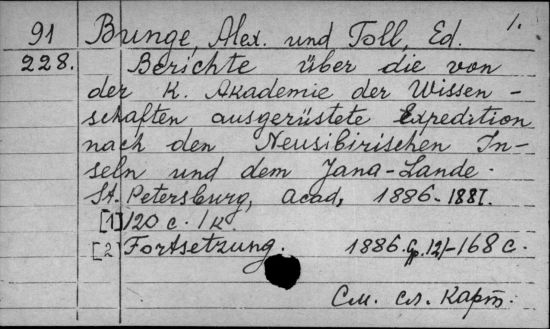 1.
91 Bunge, Alex. und Toll, Ed.
228. Berichte über die von
der K. Akademie der Wissen-
schaften ausgerüstete Expedition
nach den Neusibirischen In-
seln und dem Jana-Lande.
St. Petersburg, Acad, 1886-1887.
[1] 120 c. 1 к.
[2] Fortsetzung. 1886. 121-168 c.
См. сл. карт.